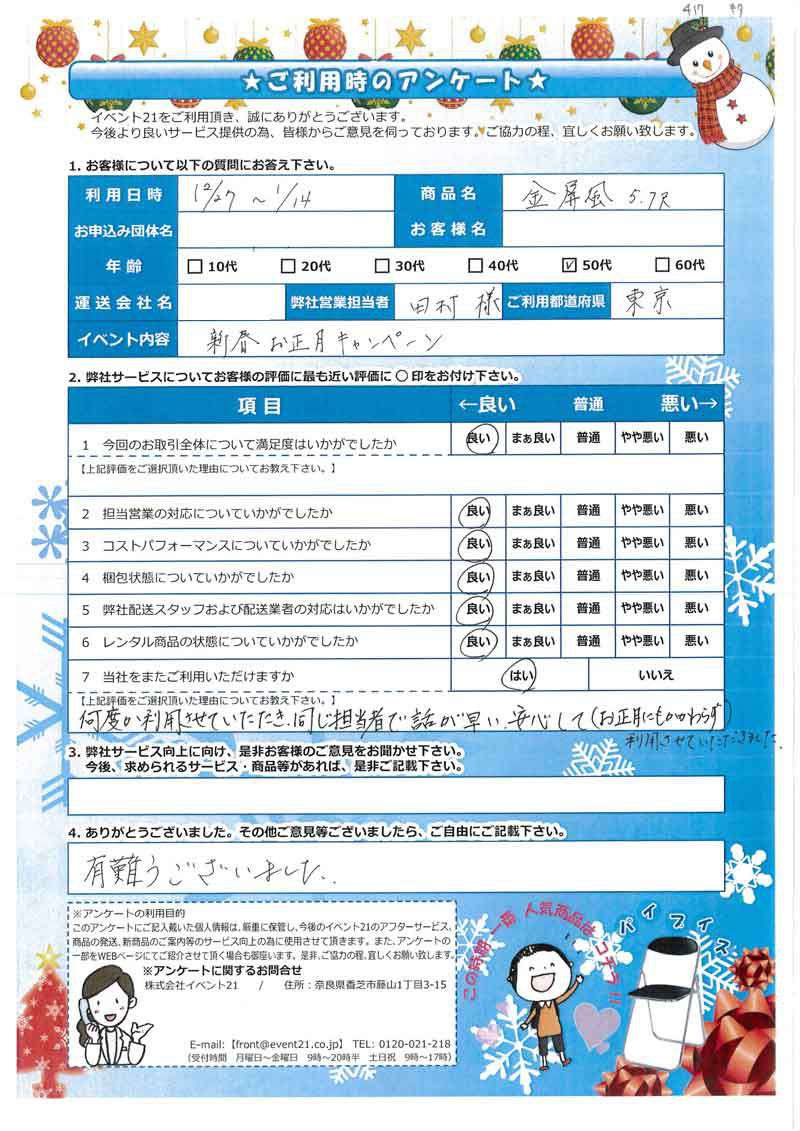 417
★ご利用時のアンケート★
イベント21をご利用頂き、誠にありがとうございます。
今後より良いサービス提供の為、皆様からご意見を伺っております。ご協力の程、宜しくお願い致します。
1. お客様について以下の質問にお答え下さい。
利用日時 12/27 ～ 1/14 商品名 金屏風 5.7尺
お申込み団体名 お客様名
年齢 □ 10代 □ 20代 □ 30代 □ 40代 ☑ 50代 □ 60代
運送会社名 弊社営業担当者 田村 様 ご利用都道府県 東京
イベント内容 新春 お正月キャンペーン
2. 弊社サービスについてお客様の評価に最も近い評価に 〇 印をお付け下さい。
項目 ←良い 普通 悪い→
1 今回のお取引全体について満足度はいかがでしたか 良い まぁ良い 普通 やや悪い 悪い
【上記評価をご選択頂いた理由についてお教え下さい。】
2 担当営業の対応についていかがでしたか 良い まぁ良い 普通 やや悪い 悪い
3 コストパフォーマンスについていかがでしたか 良い まぁ良い 普通 やや悪い 悪い
4 梱包状態についていかがでしたか 良い まぁ良い 普通 やや悪い 悪い
5 弊社配送スタッフおよび配送業者の対応はいかがでしたか 良い まぁ良い 普通 やや悪い 悪い
6 レンタル商品の状態についていかがでしたか 良い まぁ良い 普通 やや悪い 悪い
7 当社をまたご利用いただけますか はい いいえ
【上記評価をご選択頂いた理由についてお教え下さい。】
何度か利用させていただき、同じ担当者で話が早い、安心して(お正月にもかかわらず)
利用させていただきました。
3. 弊社サービス向上に向け、是非お客様のご意見をお聞かせ下さい。
今後、求められるサービス・商品等があれば、是非ご記載下さい。
4. ありがとうございました。その他ご意見等ございましたら、ご自由にご記載下さい。
有難うございました。
※アンケートの利用目的
このアンケートにご記入戴いた個人情報は、厳重に保管し、今後のイベント21のアフターサービス、
商品の発送、新商品のご案内等のサービス向上の為に使用させて頂きます。また、アンケートの
一部をWEBページにてご紹介させて頂く場合も御座います。是非、ご協力の程、宜しくお願い致します。
※アンケートに関するお問合せ
株式会社イベント21 / 住所:奈良県香芝市藤山1丁目3-15
E-mail:【front@event21.co.jp】 TEL: 0120-021-218
(受付時間 月曜日～金曜日 9時～20時半 土日祝 9時～17時)
この時期 一番 人気商品は コチラ!!
パイプイス